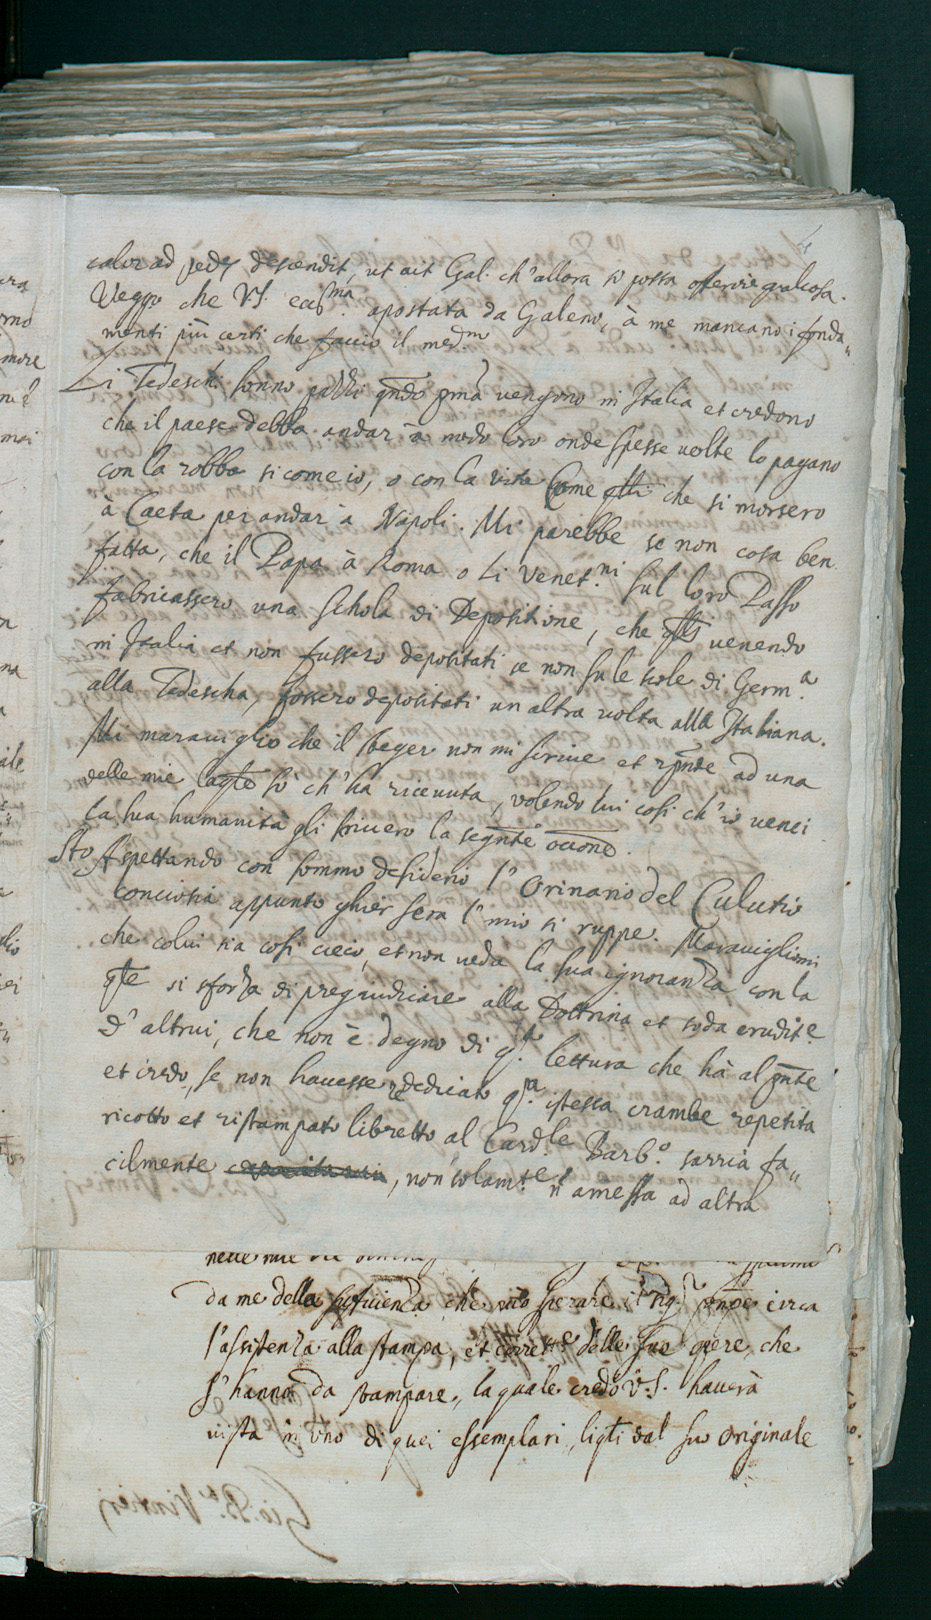 calor ad pedes descendit, ut ait Gal. ch'allora si possa offerire qualcosa.
Veggo che V.S. ecc.ma apostata da Galeno, à me mancano i fonda„
menti più certi che faccio il med.mo
Li Tedeschi sonno pazzi qndo pma vengono in Italia et credono
che il paese debba andar à modo loro onde spesse volte lo pagano
con la robba si come io, o con la vita Come qlli che si morsero
à Caeta per andar à Napoli. Mi parebbe se non cosa ben
fatta, che il Papa à Roma o Li Venet.ni sul loro Passo
fabricassero una Schola di Depositione, che qsti venendo
in Italia et non fussero depositati se non su le scole di Germ.a
alla Tedescha, fossero depositati un altra volta alla Italiana.
Mi maraviglio che il Seger non mi scrive et rsponde ad una
delle mie laqle sò ch'hà ricevuta, volendo lui così ch'io venci
la sua humanità gli scrivero la segnte occne.
Sto Aspettando con sommo desiderio l'Orinario del Culutio
conciosia appunto ghier sera l'mio si ruppe. Maravigliomi
che colui sia così cieco, et non veda la sua ignoranza con la
qle si sforza di pregiudicare alla Dottrina et soda erudit.e
d'altrui, che non è degno di q.ta lettura che hà al pnte
et credo, se non havesse rededicato q.ta istessa crambe repetita
ricotto et ristampato libretto al Card.le Barb.o sarria fa„
cilmente , non solam.te n'amessa ad altra
nelle mie
da me della sufficienza che può sperare il Sig.r pnpe circa
l'assistenza alla stampa, et correte delle sue opere, che
s'hanno da stampare, la quale credo V.S. haverà
vista in uno di quei essemplari, liqti dal suo originale
Gio. B.a Vinther